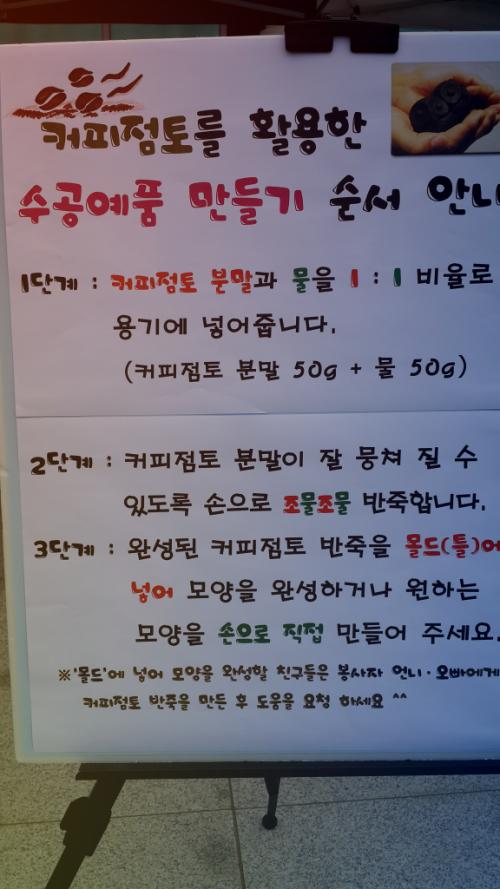 커피점토를 활용한
수공예품 만들기 순서
1단계 : 커피점토 분말과 물을 1 : 1 비율로
용기에 넣어줍니다.
(커피점토 분말 50g + 물 50g)
2단계 : 커피점토 분말이 잘 뭉쳐 질 수
있도록 손으로 조물조물 반죽합니다.
3단계 : 완성된 커피점토 반죽을 몰드(틀)에
넣어 모양을 완성하거나 원하는
모양을 손으로 직접 만들어 주세요.
※'몰드'에 넣어 모양을 완성할 친구들은 봉사자 언니·오빠에게
커피점토 반죽을 만든 후 도움을 요청 하세요 ^^